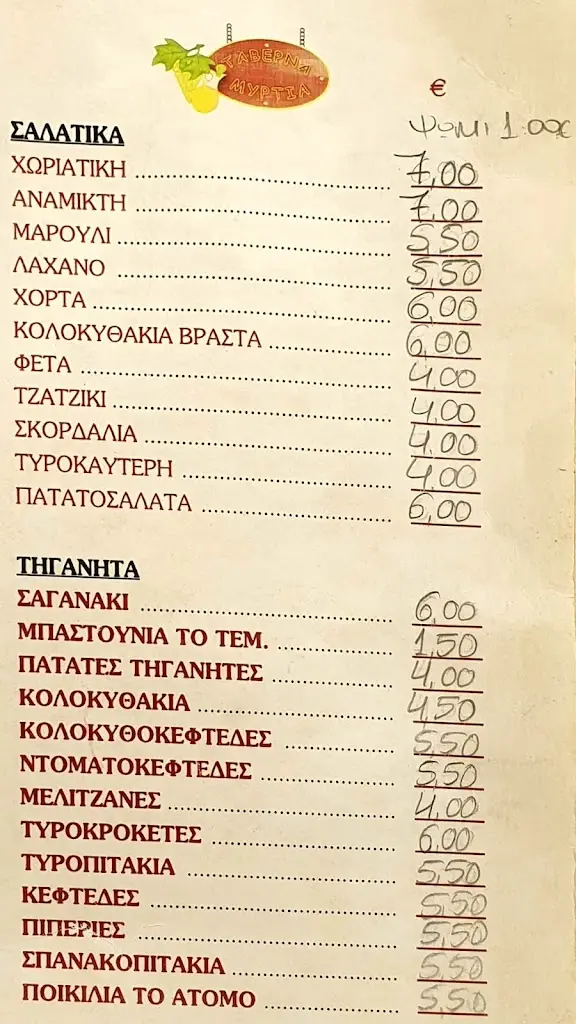 ΤΑΒΕΡΝΑ
ΜΥΡΤΙΑ
€
ΨΩΜΙ 1.00€
ΣΑΛΑΤΙΚΑ
ΧΩΡΙΑΤΙΚΗ 7,00
ΑΝΑΜΙΚΤΗ 7,00
ΜΑΡΟΥΛΙ 5,50
ΛΑΧΑΝΟ 5,50
ΧΟΡΤΑ 6,00
ΚΟΛΟΚΥΘΑΚΙΑ ΒΡΑΣΤΑ 6,00
ΦΕΤΑ 4,00
ΤΖΑΤΖΙΚΙ 4,00
ΣΚΟΡΔΑΛΙΑ 4.00
ΤΥΡΟΚΑΥΤΕΡΗ 4,00
ΠΑΤΑΤΟΣΑΛΑΤΑ 6,00
ΤΗΓΑΝΗΤΑ
ΣΑΓΑΝΑΚΙ 6,00
ΜΠΑΣΤΟΥΝΙΑ ΤΟ ΤΕΜ. 1,50
ΠΑΤΑΤΕΣ ΤΗΓΑΝΗΤΕΣ 4,00
ΚΟΛΟΚΥΘΑΚΙΑ 4,50
ΚΟΛΟΚΥΘΟΚΕΦΤΕΔΕΣ 5,50
ΝΤΟΜΑΤΟΚΕΦΤΕΔΕΣ 5,50
ΜΕΛΙΤΖΑΝΕΣ 4,00
ΤΥΡΟΚΡΟΚΕΤΕΣ 6,00
ΤΥΡΟΠΙΤΑΚΙΑ 5,50
ΚΕΦΤΕΔΕΣ 5,50
ΠΙΠΕΡΙΕΣ 5,50
ΣΠΑΝΑΚΟΠΙΤΑΚΙΑ 5,50
ΠΟΙΚΙΛΙΑ ΤΟ ΑΤΟΜΟ 5,50